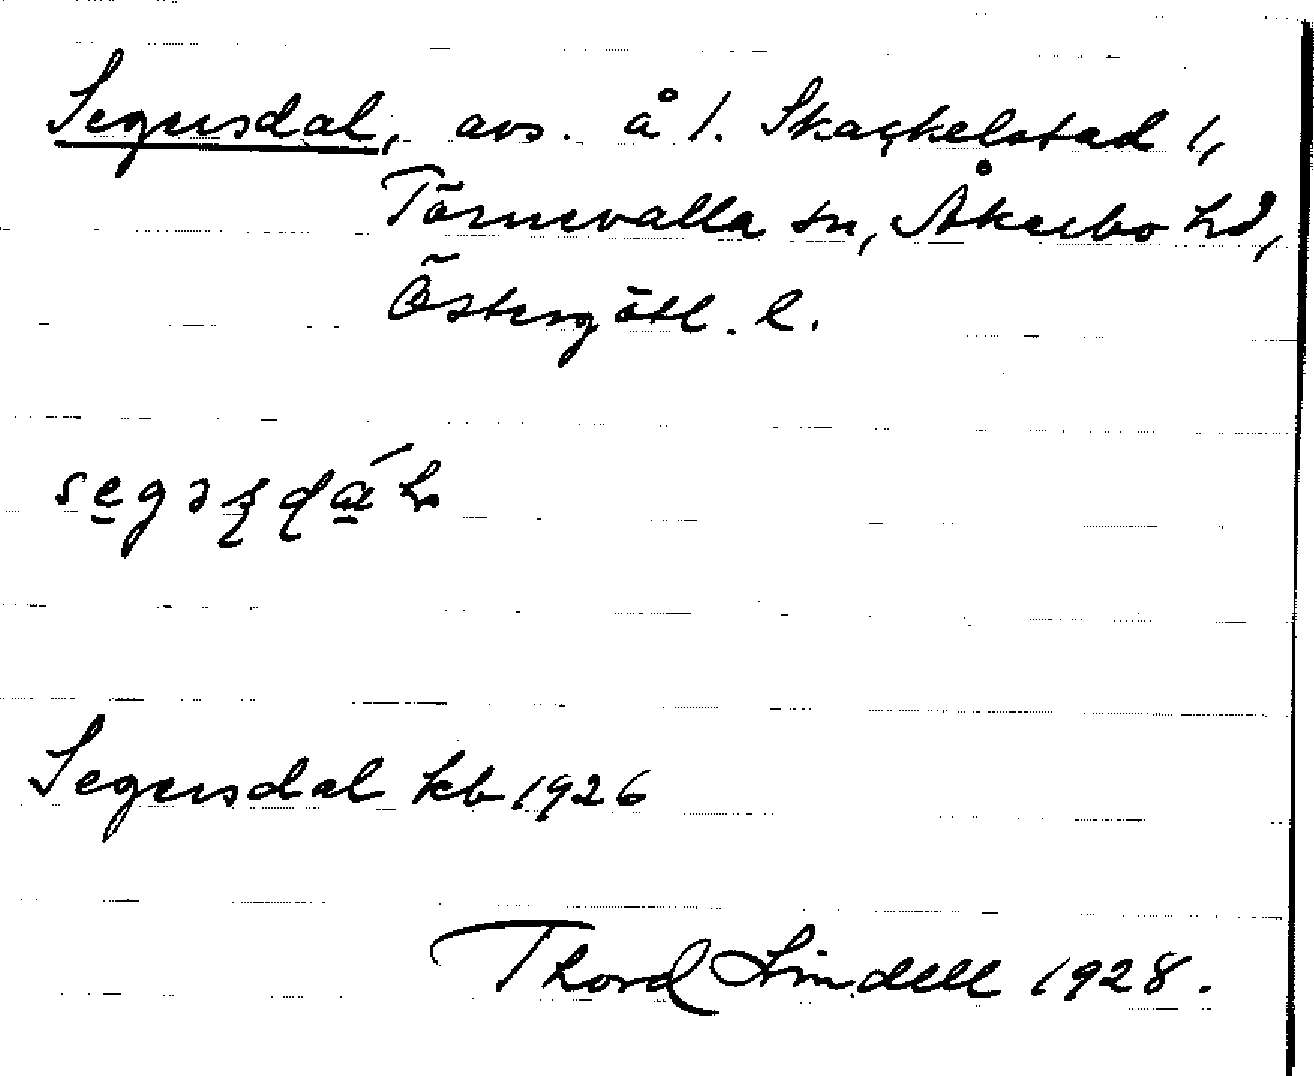 Segersdal, avs. å 1. Skackelstad 1,
Törnevalla sn, Åkerbo hd,
Östergötl. l.
Segersdal kb 1926
Thord Lindell 1928.